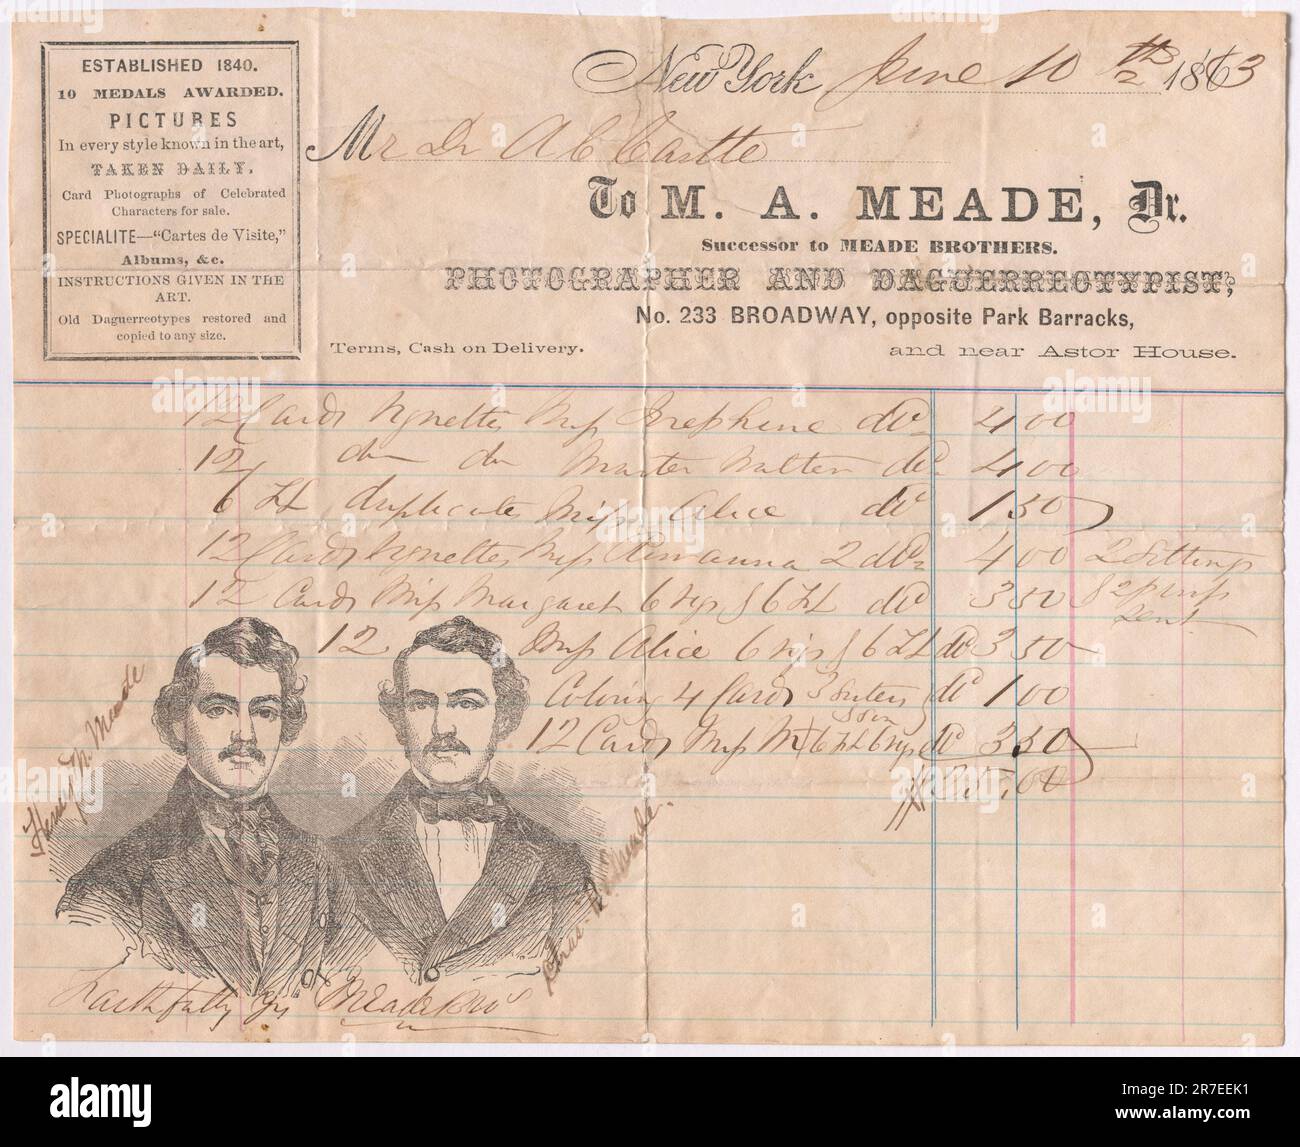 ESTABLISHED 1840.
10 MEDALS AWARDED.
PICTURES
In every style known in the art,
TAKEN DAILY.
Card Photographs of Celebrated
Characters for sale.
SPECIALITE—"Cartes de Visite,"
Albums, &c.
INSTRUCTIONS GIVEN IN THE
ART.
Old Daguerreotypes restored and
copied to any size.
New York June 10th 1863
Mr Dr A C Castle
To M. A. MEADE, Dr.
Successor to MEADE BROTHERS.
PHOTOGRAPHER AND DAGUERREOTYPIST,
No. 233 BROADWAY, opposite Park Barracks,
Terms, Cash on Delivery. and near Astor House.
12 Cards Vignette Miss Josephine 4 00
12 Master Walter 4 00
6 duplicate Miss Alice 1 50
12 Cards Vignettes Miss 2 4 00 2 Sittings
12 Cards Miss Margaret 6 Vigs & 6 3 50
12 Miss Alice 6 Vigs & 6 3 50
Coloring 4 Cards 1 00
12 Cards Miss 3 50
25.00
Henry M. Meade
Chas. R. Meade.
Faithfully Yrs Meade Bros
alamy
Image ID: 2R7EEK1
www.alamy.com